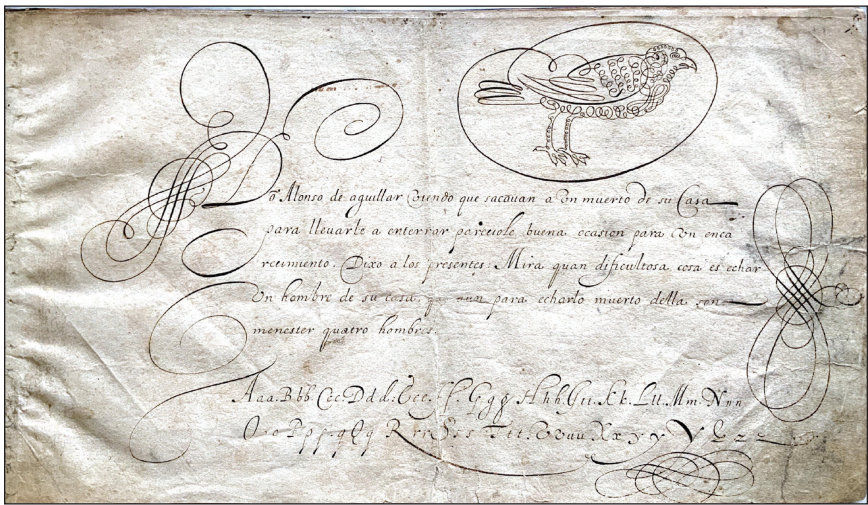 Dō Alonso de aguillar viendo que sacauan a vn muerto de su Casa
para lleuarle a enterrar pareciole buena ocasion para vn enca
recimiento. Dixo a los presentes: Mira quan dificultosa cosa es echar
vn hombre de su casa, que aun para echarlo muerto della son
menester quatro hombres.
Aaa.Bbb.Ccc.Ddd.Eee.ff.Ggg.Hhh.Iii.kk.Lll.Mm.Nnn
Ooo Ppp.qQq Rrr Sss Ttt.Vvuu Xxyy Y zz